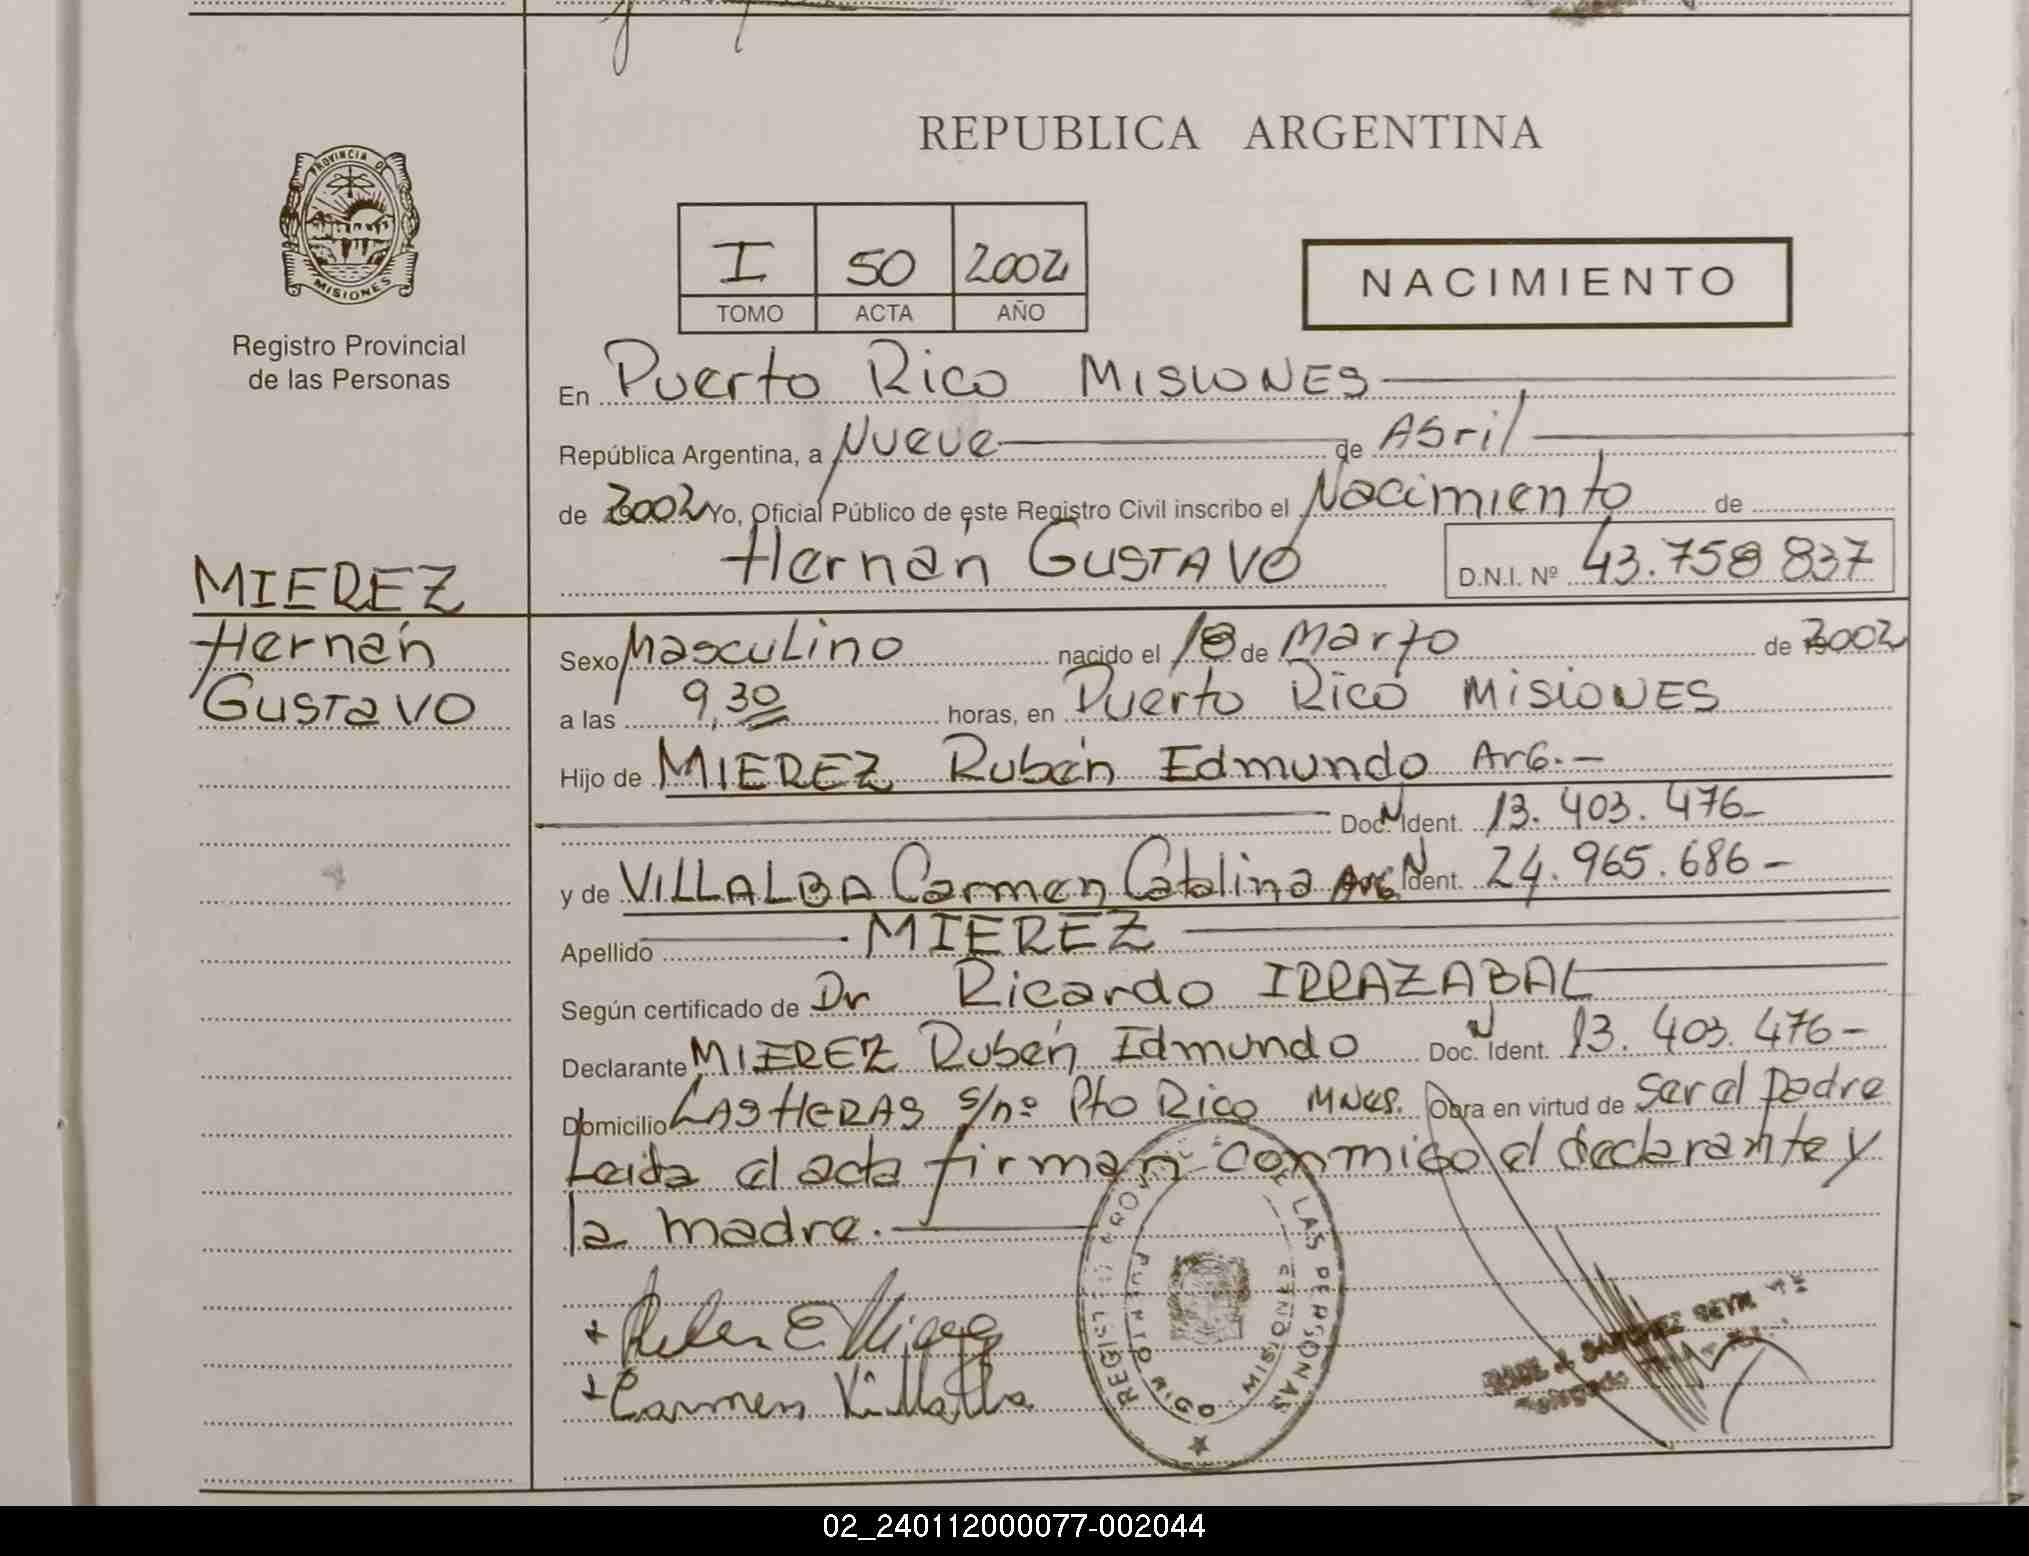 REPUBLICA ARGENTINA
PROVINCIA DE
MISIONES
Registro Provincial
de las Personas
I 50 2002
TOMO ACTA AÑO
NACIMIENTO
En Puerto Rico MISIONES
República Argentina, a Nueve de Abril
de 2002 Yo, Oficial Público de este Registro Civil inscribo el Nacimiento de
Hernán GUSTAVO D.N.I. Nº 43.758 837
MIEREZ
Hernán
GUSTAVO
Sexo Masculino nacido el 18 de Marzo de 2002
a las 9,30 horas, en Puerto Rico MISIONES
Hijo de MIEREZ Rubén Edmundo ArG.-
Doc. N Ident. 13.403.476-
y de VILLALBA Carmen Catalina ArG N Ident. 24.965.686-
Apellido MIEREZ
Según certificado de Dr Ricardo IRRAZABAL
Declarante MIEREZ Rubén Edmundo Doc. N Ident. 13.403.476-
Domicilio LAS HERAS s/nº Pto Rico Mnes. Obra en virtud de ser el padre
Leida el acta firman conmigo el declarante y
la madre.
+ Ruben E Mierez
+ Carmen Villalba
REGISTRO PROVINCIAL DE LAS PERSONAS
PUERTO RICO MISIONES
02_240112000077-002044